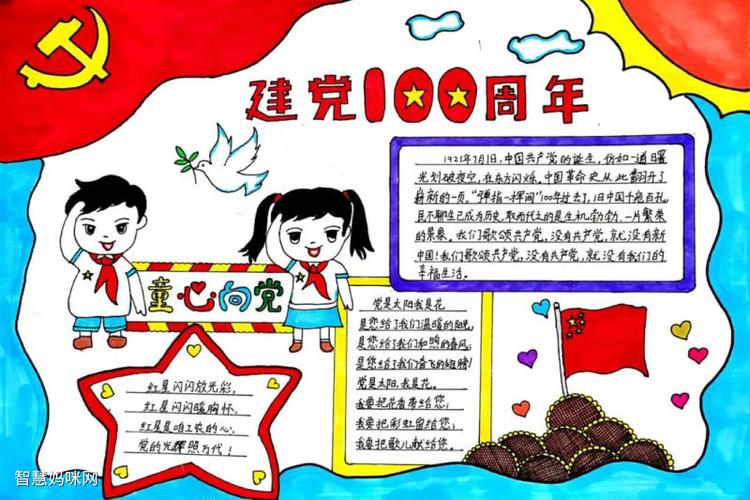 建党100周年
1921年7月1日,中国共产党的诞生,仿如一道曙
光划破夜空,在东方闪烁。中国革命史从此翻开了
崭新的一页。“弹指一挥间”100年过去了,旧中国千疮百孔、
民不聊生已成为历史,取而代之的是生机勃勃、一片繁荣
的景象。我们歌颂共产党,没有共产党,就没有新
中国!我们歌颂共产党,没有共产党,就没有我们的
幸福生活。
童心向党
党是太阳我是花
是您给了我们温暖的阳光,
是您给了我们和煦的春风;
是您给了我们奋飞的翅膀!
党是太阳,我是花。
我要把花香带给您;
我要把彩虹留给您;
我要把歌儿献给您。
红星闪闪放光彩,
红星闪闪暖胸怀,
红星是咱工农的心,
党的光辉照万代!
智慧妈咪网